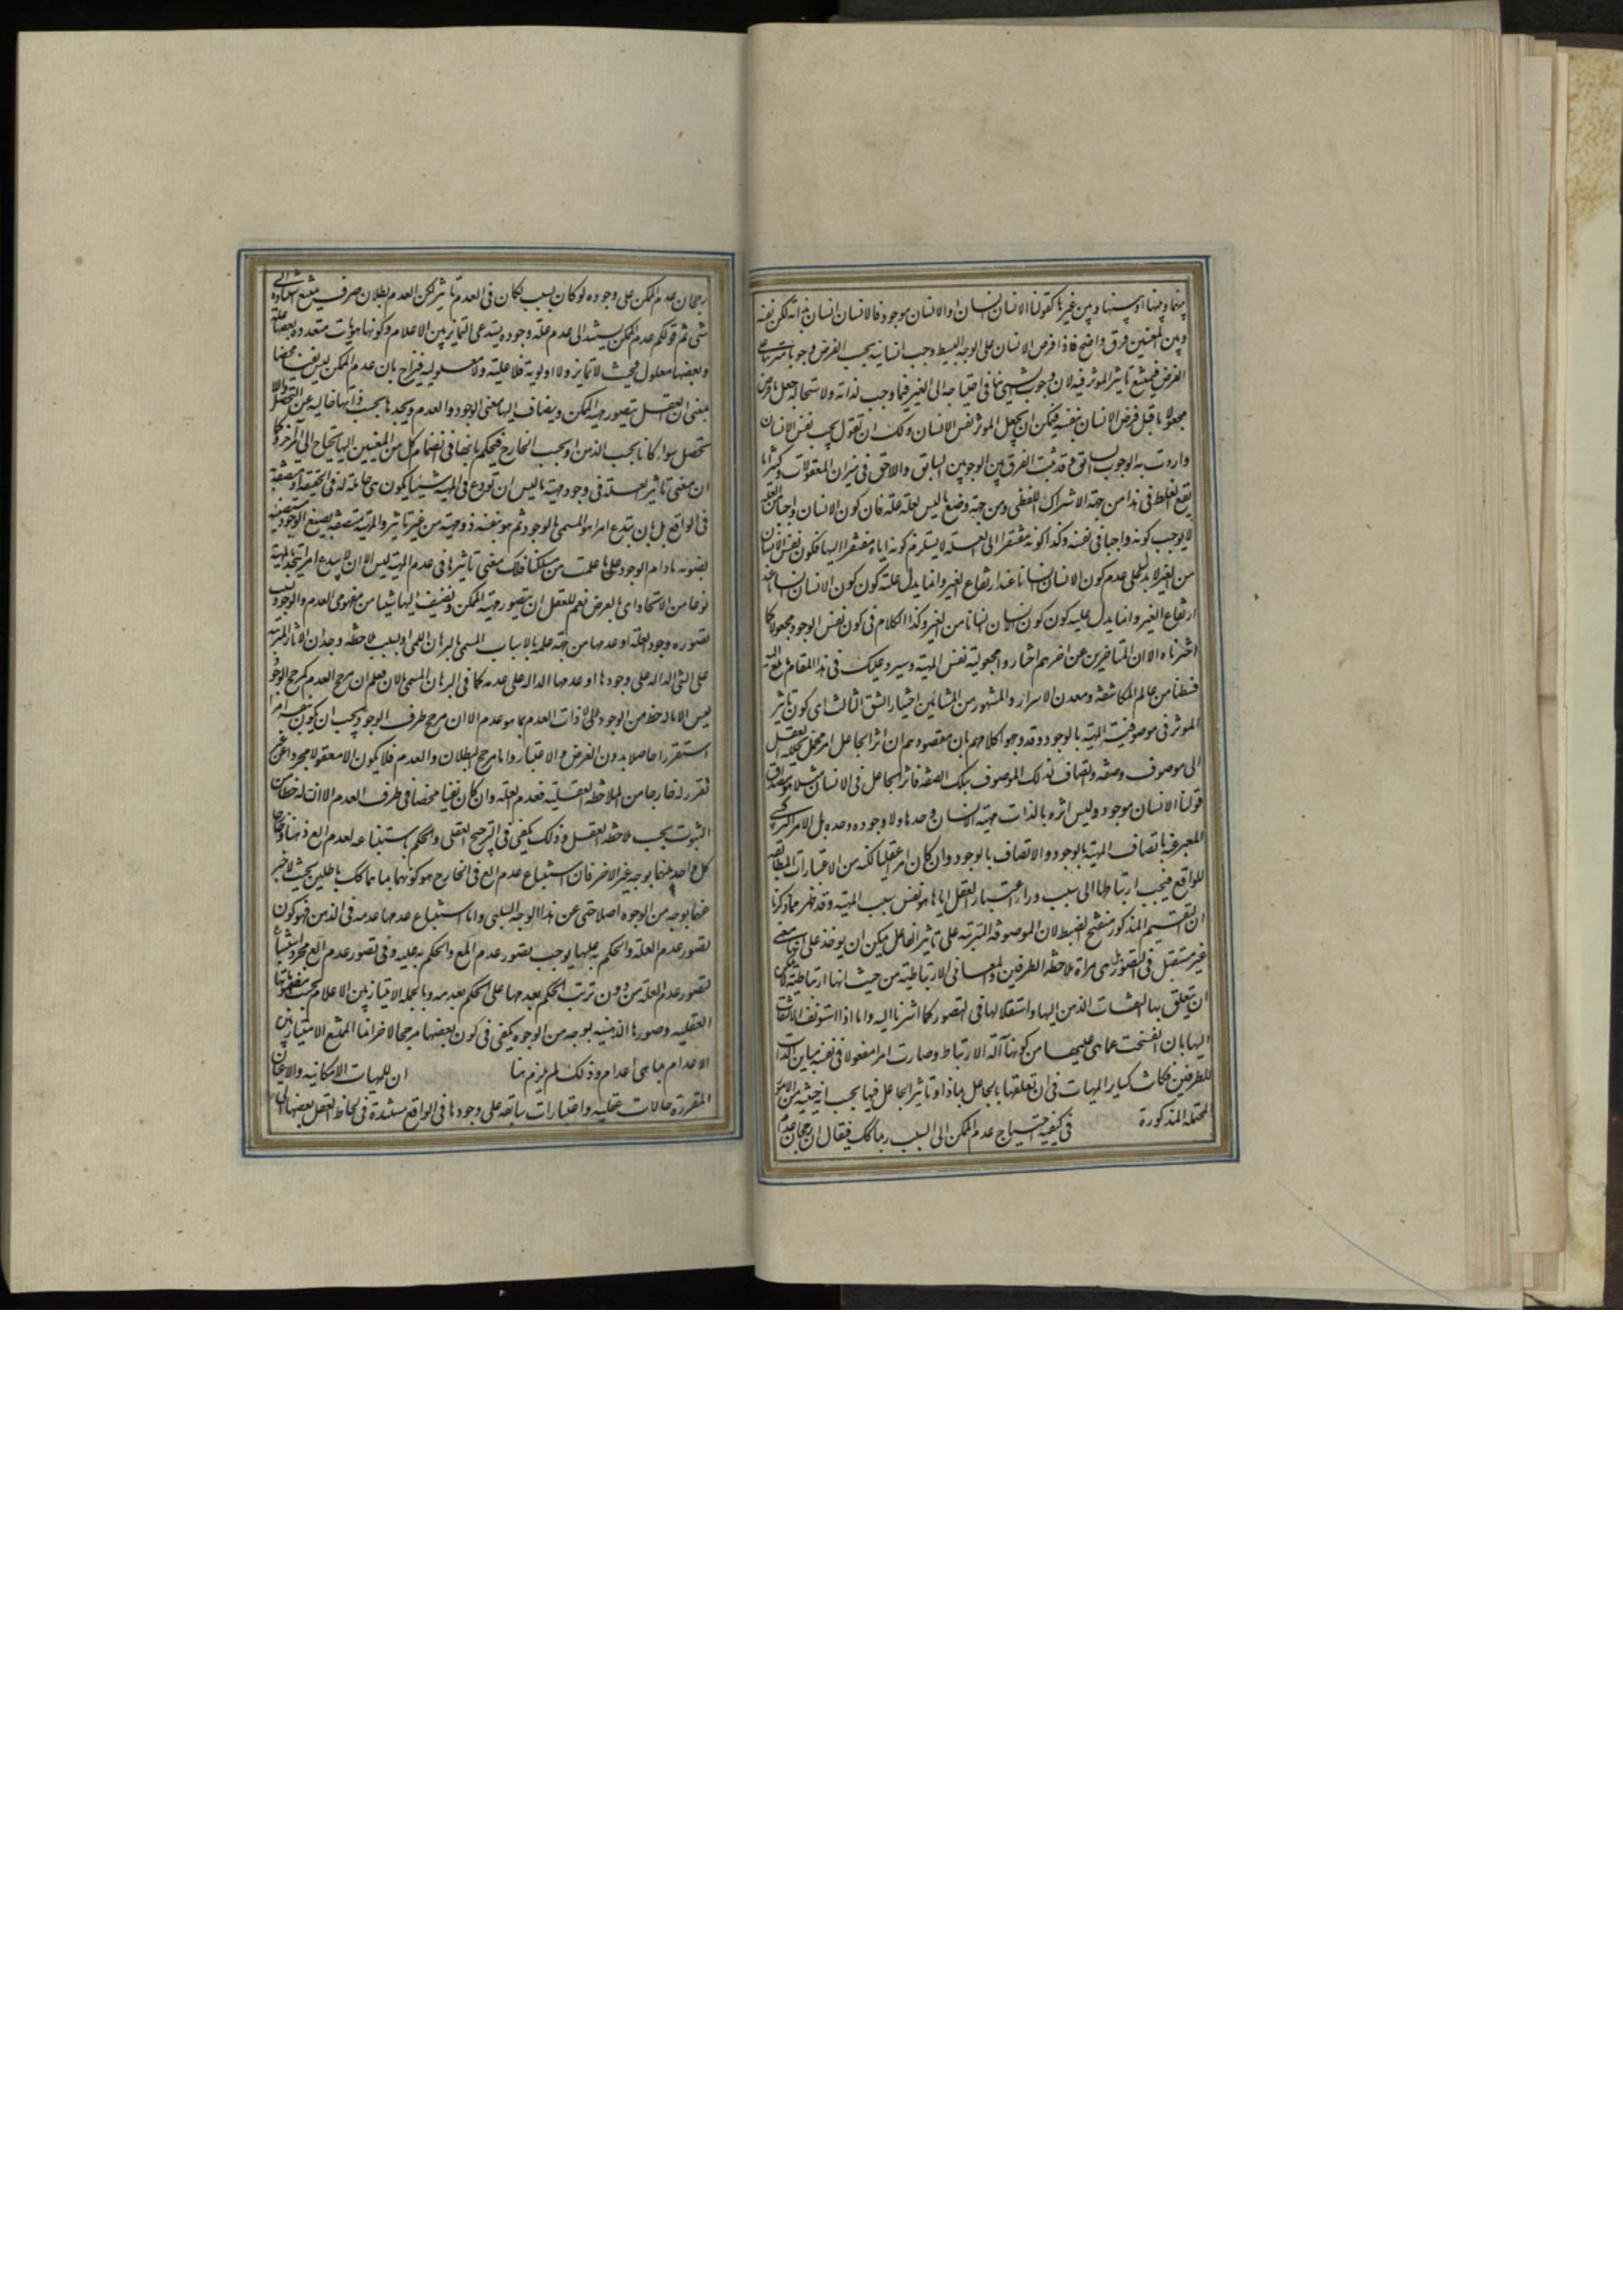 بينهما وبينها او بينها وبين غيرها كقولنا الانسان انسان او الانسان موجود فالانسان انسان بذاته لكن نفسه
وبين المعنيين فرق واضح فاذا فرض الانسان على الوجه البسيط وجب انسانيته بحسب الفرض وجوبا مترتبا على
الفرض فيمتنع تاثير الموثر فيه لان وجوب الشيئ ينافي احتياجه الى الغير فيما وجب لذاته ولاستحالة جعل ما فرض
مجعولا ما قبل فرض الانسان نفسه فيمكن ان يجعل الموثر نفس الانسان ولك ان تقول يجب نفس الانسان
واردت به الوجوب السابق وقد ثبت الفرق بين الوجوبين السابق واللاحق في ميزان المعقولات وكثيرا ما
يقع الغلط في هذا من جهة الاشتراك اللفظي ومن جهة وضع ما ليس بعلة علة فان كون الانسان واجبا من العلة
لا يوجب كونه واجبا في نفسه وكذا كونه مفتقرا الى العلة لا يستلزم كونه اياه مفتقرا اليها فكون نفس الانسان
من الغير لا يدل على عدم كون الانسان انسانا عند ارتفاع الغير وانما يدل علته كون كون الانسان انسانا عند
ارتفاع الغير وانما يدل عليه كون كون الانسان انسانا من الغير وكذا الكلام في كون نفس الوجود مجعولا كما
اخترناه الا ان المتاخرين عن اخرهم اختاروا مجعولية نفس المهية وسيرد عليك في هذا المقام
قسطنا من عالم المكاشفة ومعدن الاسرار والمشهور من المشائين اختيار الشق الثالث اى كون تاثير
الموثر في موصوفية المهية بالوجود وقد وجهوا كلامهم بان مقصودهم ان اثر الجاعل امر مجمل يحلله العقل
الى موصوف وصفة واتصاف لذلك الموصوف بتلك الصفة فاثر الجاعل في الانسان مثلا هو مصداق
قولنا الانسان موجود وليس اثره بالذات مهية الانسان وحدها ولا وجوده وحده بل الامر التركيبى
المعبر عنه باتصاف المهية بالوجود والاتصاف بالوجود وان كان امرا عقليا لكنه من الاعتبارات المطابقة
للواقع فيجب ارتباطها الى سبب وراء اعتبار العقل اياها هو نفس سبب المهية وقد ظهر مما ذكرنا
ان التقسيم المذكور منفتح الضبط لان الموصوفية المترتبة على تاثير الفاعل يمكن ان يوخذ على انها معنى
غير مستقل في التصور بل هى مراة ملاحظة الطرفين والمعانى الارتباطية من حيث انها ارتباطية لا يمكن
ان يتعلق بها التفات الذهن اليها واستقلالها في التصور كما اشرنا اليه واما اذا استونف الالتفات
اليها بان انفسخت عما هى عليها من كونها آلة الارتباط وصارت امرا معقولا في نفسه مباين الذات
للطرفين فكانت كسائر المهيات في ان تعلقها بالجاعل بماذا وتاثير الجاعل فيها بحسب اى حيثية من الامور
المحتملة المذكورة في كيفية احتياج عدم الممكن الى السبب ربما يشكك فيقال ان رجحان عدم
رجحان عدم الممكن على وجوده لو كان بسبب لكان في العدم تاثير لكن العدم بطلان صرف يمتنع استناده الى
شى ثم قولكم عدم الممكن يستند الى عدم علة وجوده يستدعى التمايز بين الاعدام وكونها هويات متعددة بعضها علة
وبعضها معلول فحيث لا تمايز ولا اولوية فلا علية ولا معلولية فيزاح بان عدم الممكن ليس نفيا محضا
بمعنى ان العقل يتصور مهية الممكن ويضاف اليها معنى الوجود والعدم ويجدها بحسب ذاتها خالية عن التحصل واللا
تحصل سواء كانا بحسب الذهن او بحسب الخارج فيحكم بانها في انضمام كل من المعنيين اليها يحتاج الى امر اخر وكما
ان معنى تاثير العلة في وجود مهية ما ليس ان تودع في المهية شيئا يكون هى حاملة له في الحقيقة او متصفة به
في الواقع بل بان يبدع امرا هو المسمى بالوجود ثم هو بنفسه ذو مهية من غير تاثير والمهية منصبغة بصبغ الوجود مستضيئة
بضوئه مادام الوجود على ما علمت من مسلكنا فكذلك معنى تاثيرها في عدم المهية ليس الا ان لا يبدع امرا يتحد بالمهية
نوعا من الاتحاد اى بالعرض نعم للعقل ان يتصور مهية الممكن ويضيف اليها شيئا من مفهومى العدم والوجود بسبب
تصوره وجود العلة او عدمها من جهة علمه بالاسباب المسمى بالبرهان اللمى او بسبب ملاحظة وجدان الاثار المترتبة
على الشئ الدالة على وجودها او عدمها الدالة على عدمه كما في البرهان المسمى بالان فعلم ان مرجح العدم كمرجح الوجود
ليس الا ما له حظ من الوجود بل لا ذات العدم بما هو عدم الا ان مرجح طرف الوجود يجب ان يكون بنفسه امرا
استقررا حاصلا بدون الفرض والاعتبار واما مرجح البطلان والعدم فلا يكون الا معقولا مجردا من غير
تقرر له خارجا من الملاحظة العقلية فعدم العلة وان كان نفيا محضا في ظرف العدم الا ان له حظا من
الثبوت بحسب ملاحظة العقل وذلك يكفي في الترجيح العقلى والحكم باستتباعه لعدم المع ذهنا وخارجا
كل واحد منهما بوجه غير الاخر فان استتباع عدم المع في الخارج هو كونهما بما هما كذلك باطلين بحيث لا خبر
عنهما بوجه من الوجوه اصلا حتى عن هذا الوجه السلبى واما استتباع عدمها عدمه في الذهن فهو كون
تصور عدم العلة والحكم به عليها يوجب تصور عدم المع والحكم به عليه وفي تصور عدم المع مجرد استتباع
تصور عدم العلة من دون ترتب الحكم بعدمها على الحكم بعدمه وبالجملة الامتياز بين الاعدام بحسب مفهوماتها
العقلية وصورها الذهنية بوجه من الوجوه يكفي في كون بعضها مرجحا لاخر انما الممتنع الامتياز بين
الاعدام بما هى اعدام وذلك لم يلزم هنا ان للمهيات الامكانية والاعيان
المتقررة حالات عقلية واعتبارات سابقة على وجودها في الواقع مستندة في لحاظ العقل بعضها الى